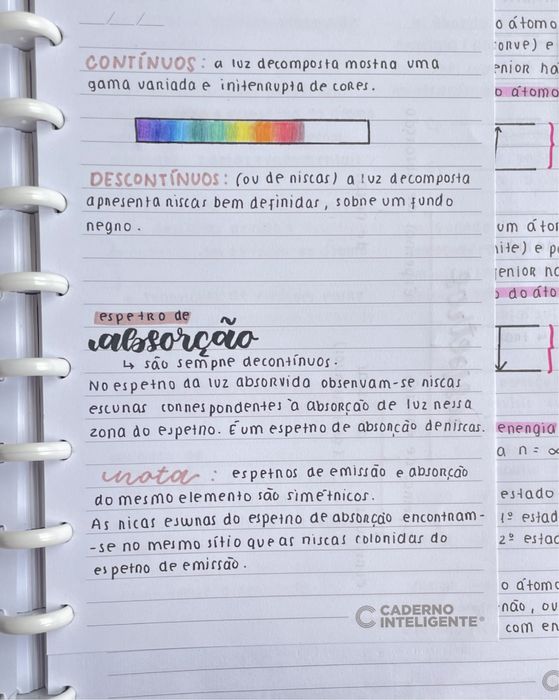 __/__/__
CONTÍNUOS: a luz decomposta mostra uma
gama variada e initerrupta de cores.
DESCONTÍNUOS: (ou de riscas) a luz decomposta
apresenta riscas bem definidas, sobre um fundo
negro.
espetro de
absorção
↳ são sempre decontínuos.
No espetro da luz absorvida observam-se riscas
escuras correspondentes à absorção de luz nessa
zona do espetro. É um espetro de absorção de riscas.
nota: espetros de emissão e absorção
do mesmo elemento são simétricos.
As ricas escuras do espetro de absorção encontram-
-se no mesmo sítio que as riscas coloridas do
espetro de emissão.
CADERNO
INTELIGENTE®
o átomo
) e
erior
o átomo
um átom
) e
erior
do áto
energia
a n = ∞
estado
1º estad
2º estad
o átomo
não, ou
com en